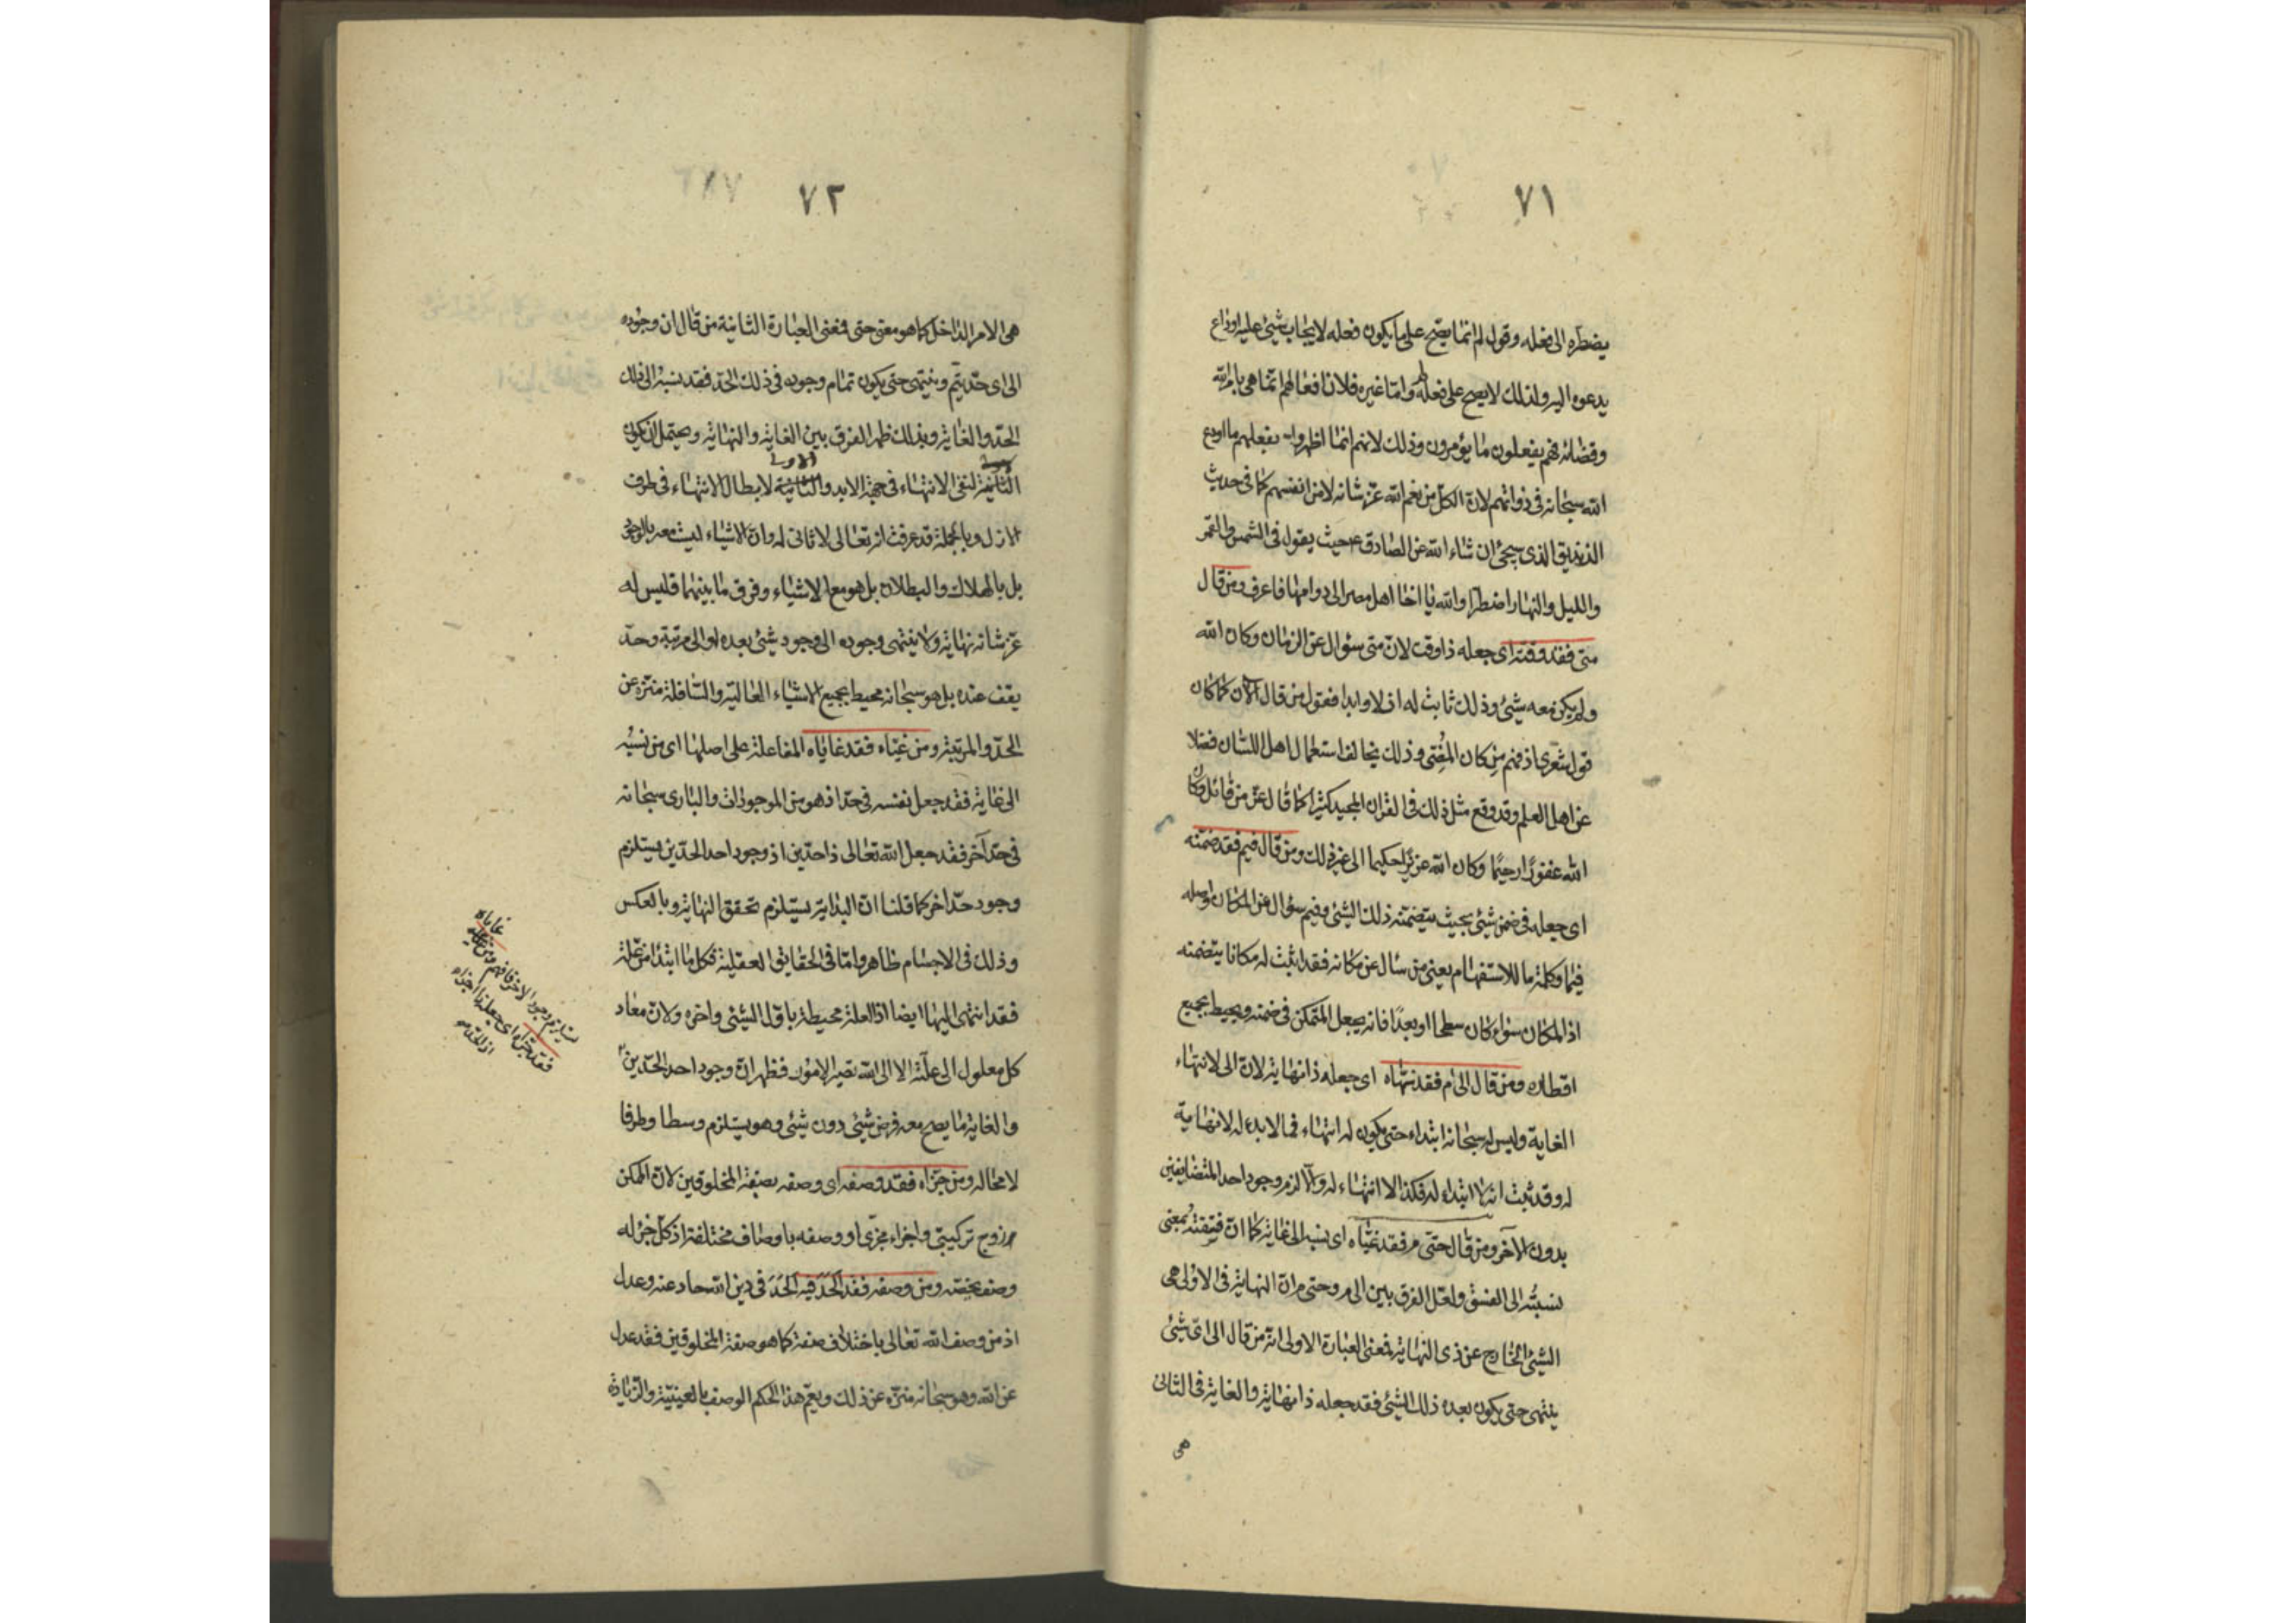 ٧١
يضطره الى فعله وقول لم انما يصح على ما يكون فعله لايجاب شئ عليه او داع
يدعوه اليه ولذلك لا يصح على فعله واما غيره فلان افعالهم انما هى بامر الله
وقضائه فهم يفعلون ما يؤمرون وذلك لانهم انما اظهروا بفعلهم ما اودع
الله سبحانه فى ذواتهم لان الكل من نعم الله عز شانه لا من انفسهم كما فى حديث
الزنديق الذى سيجئ ان شاء الله عن الصادق ع حيث يقول فى الشمس والقمر
والليل والنهار اضطرا والله يا اخا اهل مصر الى دوامها فاعرف ومن قال
متى فقد وقته اى جعله ذا وقت لان متى سؤال عن الزمان وكان الله
ولم يكن معه شئ وذلك ثابت له ازلا وابدا فقول من قال الآن كما كان
قول شعرى اذ فهم من كان المضى وذلك يخالف استعمال اهل اللسان فضلا
عن اهل العلم وقد وقع مثل ذلك فى القران المجيد كثيرا كما قال عز من قائل وكان
الله غفورا رحيما وكان الله عزيزا حكيما الى غير ذلك ومن قال فيم فقد ضمنه
اى جعله فى ضمن شئ بحيث يتضمنه ذلك الشئ وفيم سؤال عن المكان واصله
فيما وكلمة ما للاستفهام يعنى من سال عن مكانه فقد اثبت له مكانا يتضمنه
اذ المكان سواء كان سطحا او بعدا فانه يجعل المتمكن فى ضمنه ويحيط بجميع
اقطاره ومن قال الى م فقد نهاه اى جعله ذا نهاية لان الى لانتهاء
الغاية وليس له سبحانه ابتداء حتى يكون له انتهاء فما لا بدء له لا نهاية
له وقد ثبت انه لا ابتداء له فكذا لا انتهاء له والا لزم وجود احد المتضايفين
بدون الآخر ومن قال حتى م فقد غياه اى نسبه الى غاية كما ان فسقته بمعنى
نسبته الى الفسق ولعل الفرق بين الى م وحتى م ان النهاية فى الاولى هى
الشئ الخارج عن ذى النهاية فمعنى العبارة الاولى انه من قال الى اى شئ
ينتهى حتى يكون بعده ذلك الشئ فقد جعله ذا نهاية والغاية فى الثانى
هى
٧٢
هى الامر الداخل كما هو معنى حتى فمعنى العبارة الثانية من قال ان وجوده
الى اى حد يتم وينتهى حتى يكون تمام وجوده فى ذلك الحد فقد نسبه الى ذلك
الحد والغاية وبذلك ظهر الفرق بين الغاية والنهاية ويحتمل ان يكون
الثانية لنفى الانتهاء فى جهة الابد والثانية لابطال الانتهاء فى طرف
الاولى
الازل وبالجملة قد عرفت انه تعالى لا ثانى له وان الاشياء ليست معه بالوجود
بل بالهلاك والبطلان بل هو مع الاشياء وفرق ما بينهما فليس له
عز شانه نهاية ولا ينتهى وجوده الى وجود شئ بعده او الى مرتبة وحد
يقف عنده بل هو سبحانه محيط بجميع الاشياء العالية والسافلة منزه عن
الحد والمرتبة ومن غياه فقد غاياه المفاعلة على اصلها اى من نسبه
الى غاية فقد جعل نفسه فى حد اذ هو من الموجودات والبارى سبحانه
فى حد آخر فقد جعل الله تعالى ذا حدين اذ وجود احد الحدين يستلزم
وجود حد اخر كما قلنا ان البداية يستلزم تحقق النهاية وبالعكس
وذلك فى الاجسام ظاهر واما فى الحقايق العقلية فكل ما ابتدا من علة
فقد انتهى اليها ايضا اذ العلة محيطة باول الشئ واخره ولان معاد
كل معلول الى علته الا الى الله تصير الامور فظهر ان وجود احد الحدين
والغاية ما يصح معه فرض شئ دون شئ وهو يستلزم وسطا وطرفا
لا محالة ومن جزاه فقد وصفه اى وصفه بصفة المخلوقين لان الممكن
زوج تركيبى واجزاء مجزى او وصفه باوصاف مختلفة اذ كل جزء له
وصف يخصه ومن وصفه فقد الحد فيه الحد فى دين الله حاد عنه وعدل
اذ من وصف الله تعالى باختلاف صفة كما هو صفة المخلوقين فقد عدل
عن الله وهو سبحانه منزه عن ذلك ويعم هذا الحكم الوصف بالعينية والزيادة
يستلزم وجود الآخر فافهم ومن غاياه
فقد جزاه اى جعله ذا اجزاء
اذ الحد